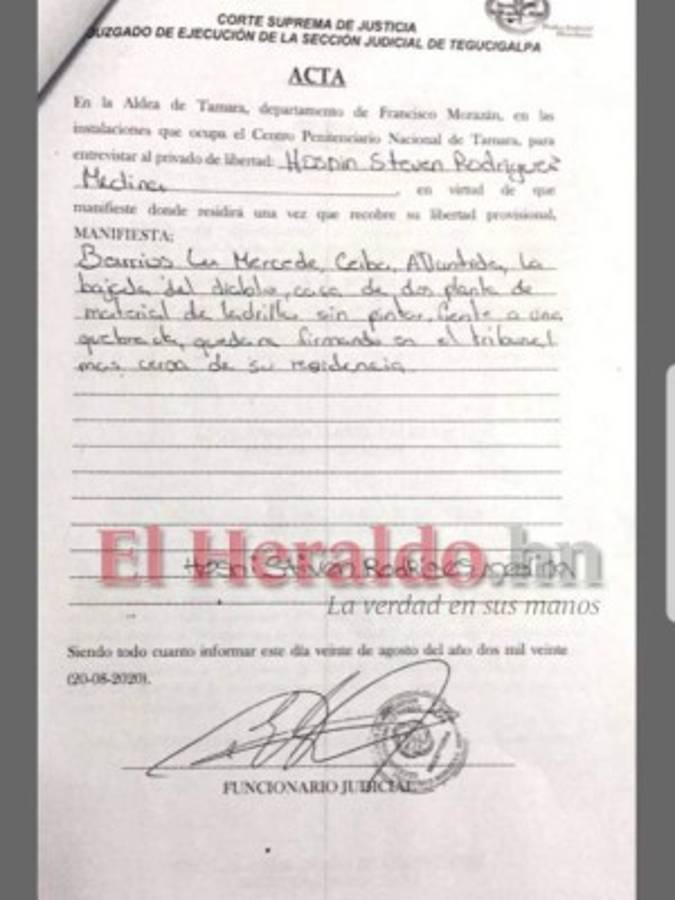 CORTE SUPREMA DE JUSTICIA
JUZGADO DE EJECUCIÓN DE LA SECCIÓN JUDICIAL DE TEGUCIGALPA
ACTA
En la Aldea de Tamara, departamento de Francisco Morazán, en las
instalaciones que ocupa el Centro Penitenciario Nacional de Tamara, para
entrevistar al privado de libertad: Hospin Steven Rodriguez
Medina, en virtud de que
manifieste donde residirá una vez que recobre su libertad provisional,
MANIFIESTA:
Barrios La Mercede, Ceiba, Atlantida, La
bajada del diablo, casa de dos planta de
material de ladrillo sin pintar, frente a una
quebrada, quedara firmando en el tribunal
mas cerca de su residencia
El Heraldo.hn
Stiven
La verdad en sus manos
Siendo todo cuanto informar este día veinte de agosto del año dos mil veinte
(20-08-2020).
FUNCIONARIO JUDICIAL